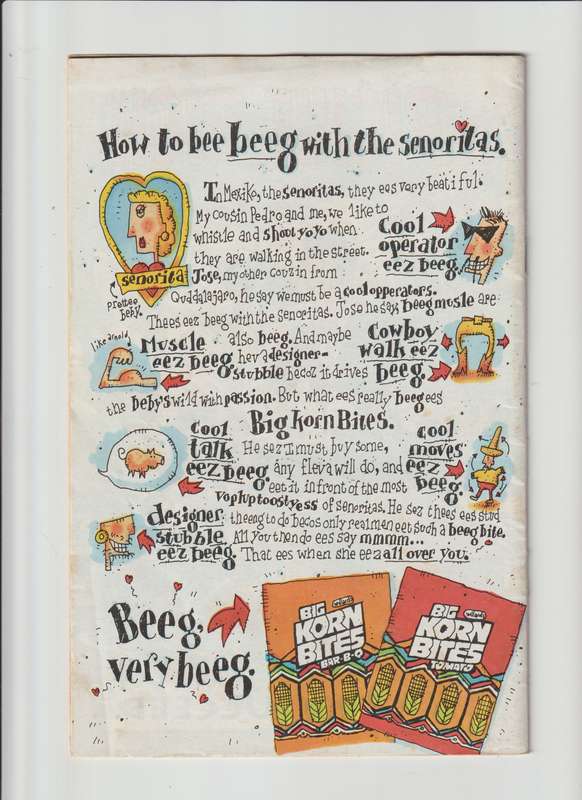 How to bee beeg with the senoritas.
In Mexiko, the senoritas, they ees very beatiful.
My cousin Pedro and me, we like to
whistle and shout yoyo when
they are walking in the street.
Jose, my other couzin from
Quadalajaro, he say we must be a cool opperators.
Thees eez beeg with the senoritas. Jose he say, beeg musle are
also beeg. And maybe
hev a designer-
stubble becoz it drives
the beby's wild with passion. But what ees really beeg ees
Big Korn Bites.
He sez I must buy some,
any fleva will do, and
eet it in front of the most
vopluptoostyess of senoritas. He sez thees ees stud
theeng to do becos only real men eet such a beeg bite.
All you then do ees say mmmm...
That ees when she eez all over you.
senorita
prettee
beby.
Cool
operator
eez beeg.
like arnold
Muscle
eez beeg
Cowboy
walk eez
beeg.
Cool
talk
eez beeg.
Cool
moves
eez
beeg.
designer
stubble
eez beeg.
Beeg,
very beeg.
BIG
KORN
BITES
BAR·B·Q
BIG
KORN
BITES
TOMATO